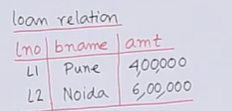 loan relation
lno bname amt
L1 Pune 4,00,000
L2 Noida 6,00,000